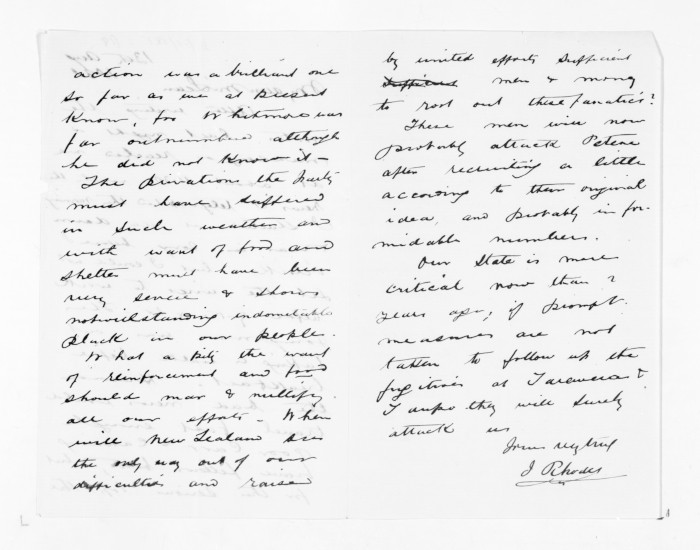 action was a brilliant one
so far as we at present
know, for Whitmore was
far outnumbered although
he did not know it -
The privations the party
must have suffered
in such weather and
with want of food and
shelter must have been
very severe & shows
notwithstanding indomitable
pluck in our people.
What a pity the want
of reinforcement and food
should mar & nullify
all our efforts - When
will New Zealand see
the only way out of our
difficulties and raise
by united efforts sufficient
sufficient men & money
to root out these fanatics?
These men will now
probably attack Petene
after recruiting a little
according to their original
idea, and probably in for-
midable numbers.
Our State is more
critical now than 2
years ago, if prompt
measures are not
taken to follow up the
fugitives at Tarewera &
Taupo they will surely
attack us
Yours very truly
J Rhodes